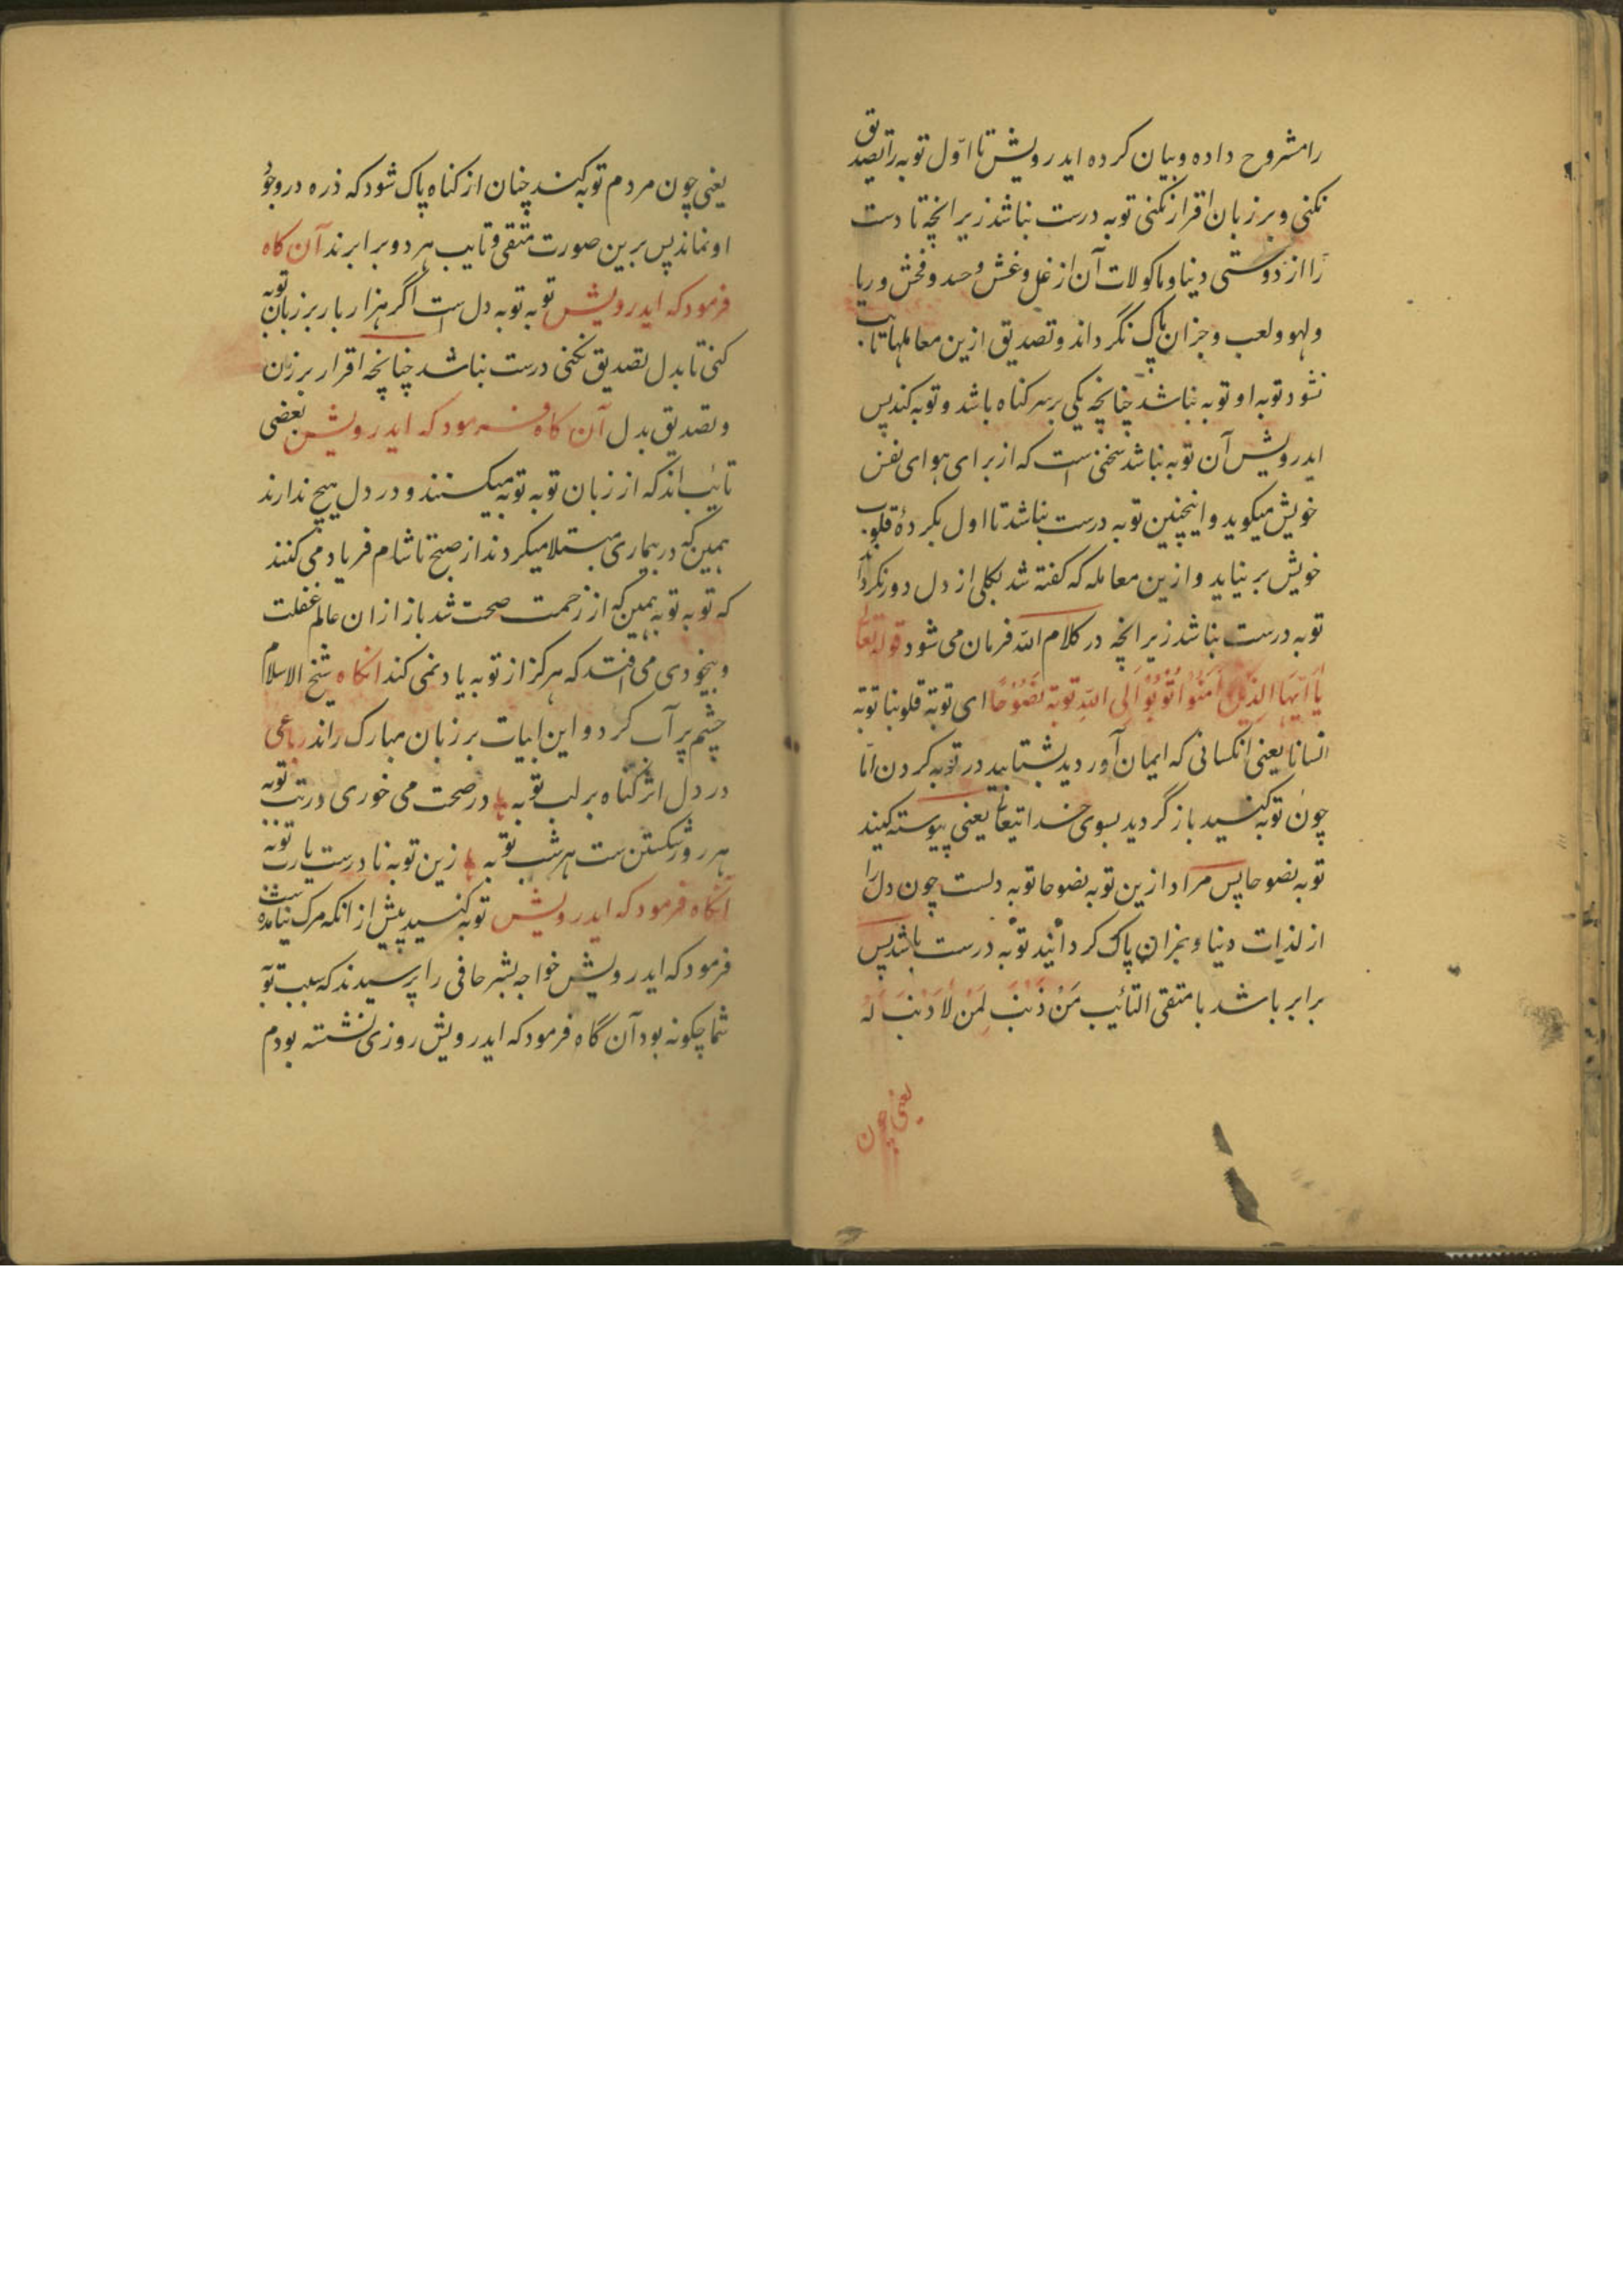 را مشروح داده و بیان کرده ایدرویش تا اوّل توبه را تصدیق
نکنی و بر زبان اقرار نکنی توبه درست نباشد زیرانچه تا دست
را از دوستی دنیا و ماکولات آن از غل و غش و حسد و فحش و ریا
و لهو و لعب و جزان پاک نگرداند و تصدیق ازین معاملها تایب
نشود توبه او توبه نباشد چنانچه یکی بر سر کناه باشد و توبه کند پس
ایدرویش آن توبه نباشد سخنی است که از برای هوای نفس
خویش میکوید و اینچنین توبه درست نباشد تا اول بکرده قلوب
خویش بر نیاید و ازین معامله که کفته شد بکلی از دل دور نکرداند
توبه درست نباشد زیرانچه در کلام الله فرمان می شود قوله تعالی
یَا اَیُّهَا الَّذِیْنَ اٰمَنُوْا تُوْبُوْا اِلَی اللّٰهِ تَوْبَةً نَصُوْحًا ای توبة قلوبنا توبة
انسانا یعنی انکسانی که ایمان آوردید بشتابید در توبه کردن امّا
چون توبه کنسید باز گردید بسوی خداتیعالی یعنی پیوسته کنید
توبه نصوحا پس مراد ازین توبه نصوحا توبه دلست چون دل را
از لذات دنیا و بجزان پاک کردانید توبه درست باشد پس
برابر باشد با متقی التائیب مَنْ ذَنْبَ لَمَنْ لَا ذَنْبَ لَهُ
یعنی چون
یعنی چون مردم توبه کنند چنان از کناه پاک شود که ذره در وجود
او نماند پس برین صورت متقی و تایب هر دو برابرند آن کاه
فرمود که ایدرویش توبه توبه دل است اگر هزار بار بر زبان توبه
کنی تا بدل تصدیق نکنی درست نباشد چنانچه اقرار بر زبان
و تصدیق بدل آن کاه فرمود که ایدرویش بعضی
تائب اند که از زبان توبه توبه میکنند و در دل هیچ ندارند
همین که در بیماری مبتلا میکردند از صبح تا شام فریاد می کنند
که توبه توبه همین که از زحمت صحت شد باز ازان عالم غفلت
و بیخودی می افتد که هرکز از توبه یاد نمی کند انکاه شیخ الاسلام
چشم پر آب کرد و این ابیات بر زبان مبارک راند رباعی
در دل اثر کناه بر لب توبه در صحت می خوری در تب توبه
هر روز شکستن ست هر شب توبه زین توبه نادرست یارب توبه
آنکاه فرمود که ایدرویش توبه کنسید پیش از انکه مرک نیامده است
فرمود که ایدرویش خواجه بشر حافی را پرسیدند که سبب توبه
شما چکونه بود آن گاه فرمود که ایدرویش روزی نشسته بودم